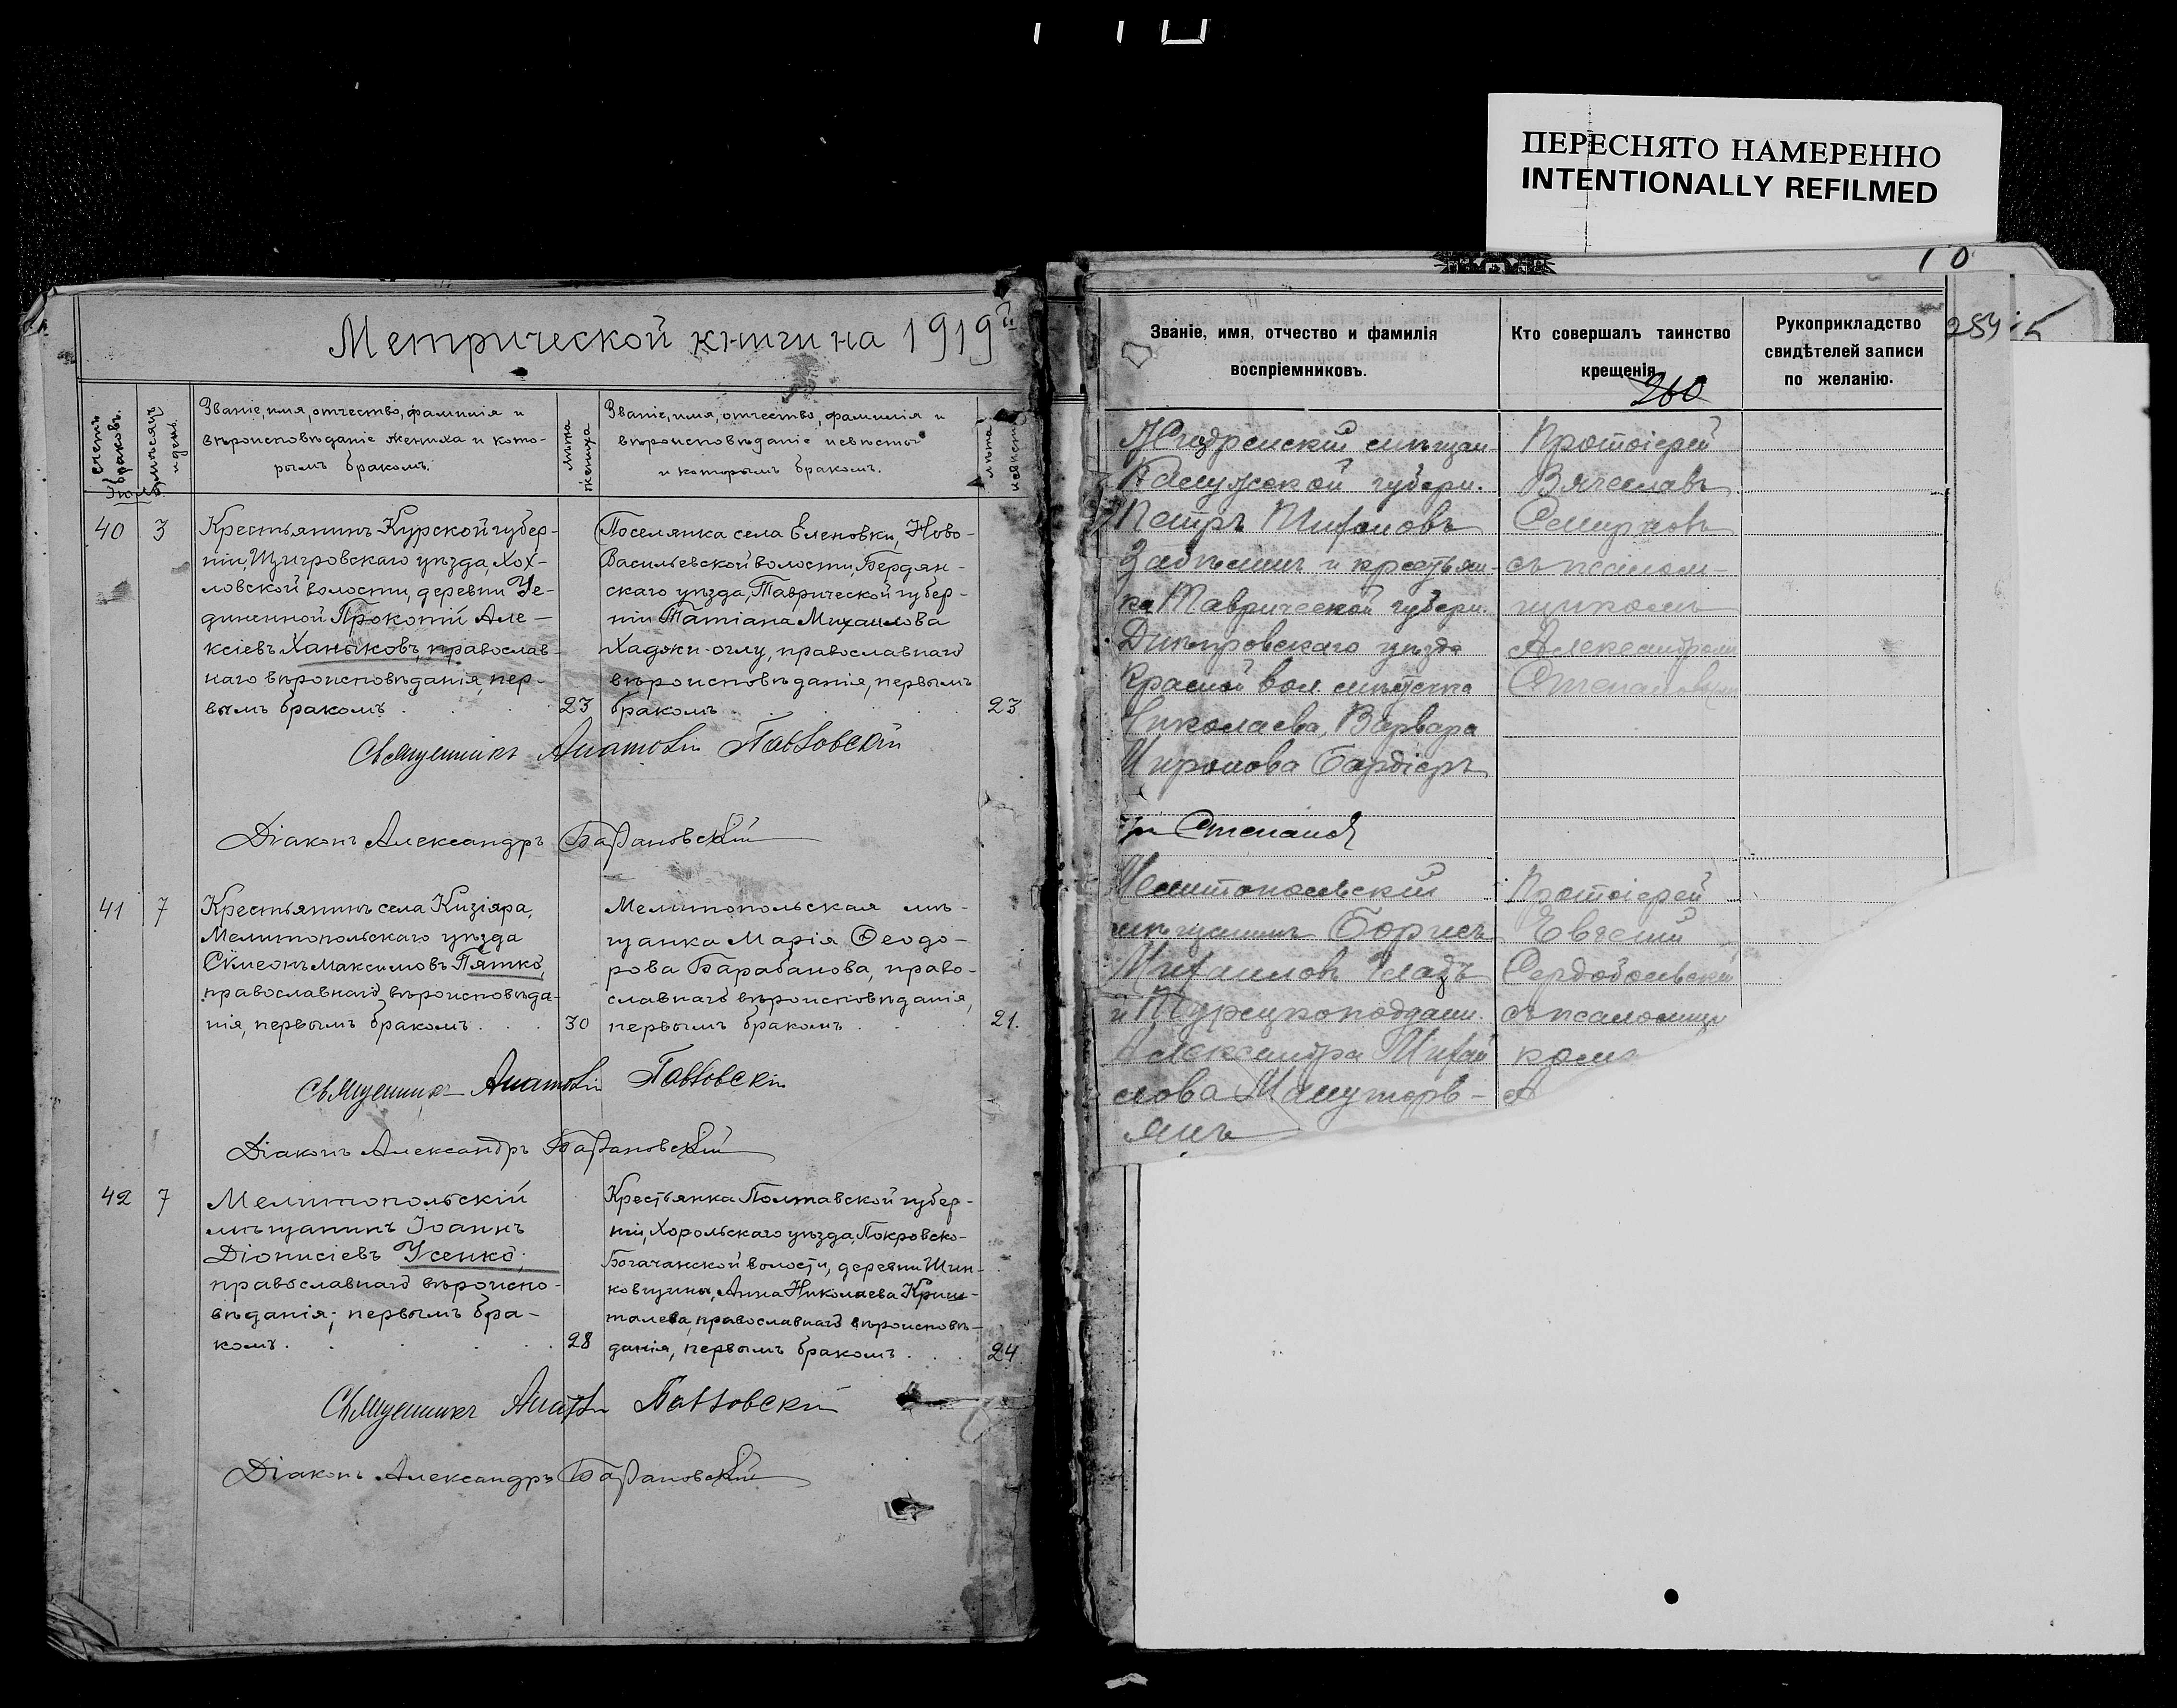 ПЕРЕСНЯТО НАМЕРЕННО
INTENTIONALLY REFILMED
Метрической книги на 1919й
счетъ браковъ.
мѣсяцъ и день.
Званіе, имя, отчество, фамилія и
вѣроисповѣданіе жениха и кото-
рымъ бракомъ.
лѣта жениха
Званіе, имя, отчество, фамилія и
вѣроисповѣданіе невѣсты
и которымъ бракомъ.
лѣта невѣсты
40
3
Крестьянинъ Курской губер-
ніи, Щигровскаго уѣзда, Хох-
ловской волости, деревни Уе-
диненной Прокопій Але-
ксіевъ Ханыковъ, православ-
наго вѣроисповѣданія, пер-
вымъ бракомъ.
23
Поселянка села Еленовки, Ново-
Васильевской волости, Бердян-
скаго уѣзда, Таврической губер-
ніи Татіана Михаилова
Хаджи-оглу, православнаго
вѣроисповѣданія, первымъ
бракомъ.
23
Священникъ Анатолій Павловскій
Діаконъ Александръ Барановскій
41
7
Крестьянинъ села Кизіяра,
Мелитопольскаго уѣзда
Симеонъ Максимовъ Пятко,
православнаго вѣроисповѣда-
нія, первымъ бракомъ.
30
Мелитопольская мѣ-
щанка Марія Ѳеодо-
рова Барабанова, право-
славнаго вѣроисповѣданія,
первымъ бракомъ.
21.
Священникъ Анатолій Павловскій
Діаконъ Александръ Барановскій
42
7
Мелитопольскій
мѣщанинъ Іоаннъ
Діонисіевъ Усенко,
православнаго вѣроиспо-
вѣданія, первымъ бра-
комъ.
28
Крестьянка Полтавской губер-
ніи, Хорольскаго уѣзда, Покровско-
Богачанской волости, деревни Шин-
ковщины, Анна Николаева Криш-
талева, православнаго вѣроисповѣ-
данія, первымъ бракомъ.
24
Священникъ Анатолій Павловскій
Діаконъ Александръ Барановскій
Званіе, имя, отчество и фамилія
воспріемниковъ.
Кто совершалъ таинство
крещенія
260
Рукоприкладство
свидѣтелей записи
по желанію.
254
Жиздренскій мѣщан-
Калужской губерн.
Петръ
и крестьян-
ка Таврической губерн.
Днѣпровскаго уѣзда
Николаева, Варвара
Миронова
Протоіерей
Вячеславъ
Смирновъ
съ псалом-
щикомъ
Александромъ
Степановымъ
Степанов
Мелитопольскій
мѣщанинъ Борисъ
Михаиловъ
и Турецкоподдан.
Александра Михаи
лова
янъ
Протоіерей
Евгеній
Сердобольскій
съ псаломщи
комъ
А